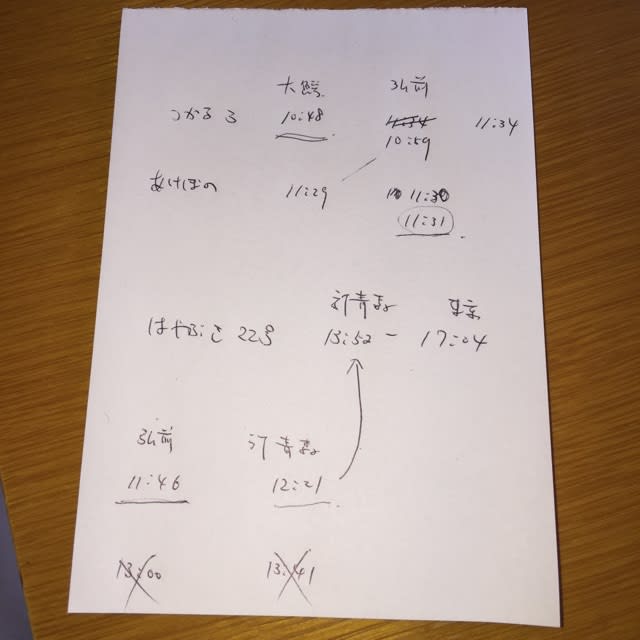 大鰐 弘前
つがる 3 10:48 11:34
10:59
あけぼの 11:29 11:30
11:31
新青森 東京
はやぶさ 22号 13:52 – 17:04
弘前 新青森
11:46 12:21
13:00 13:41